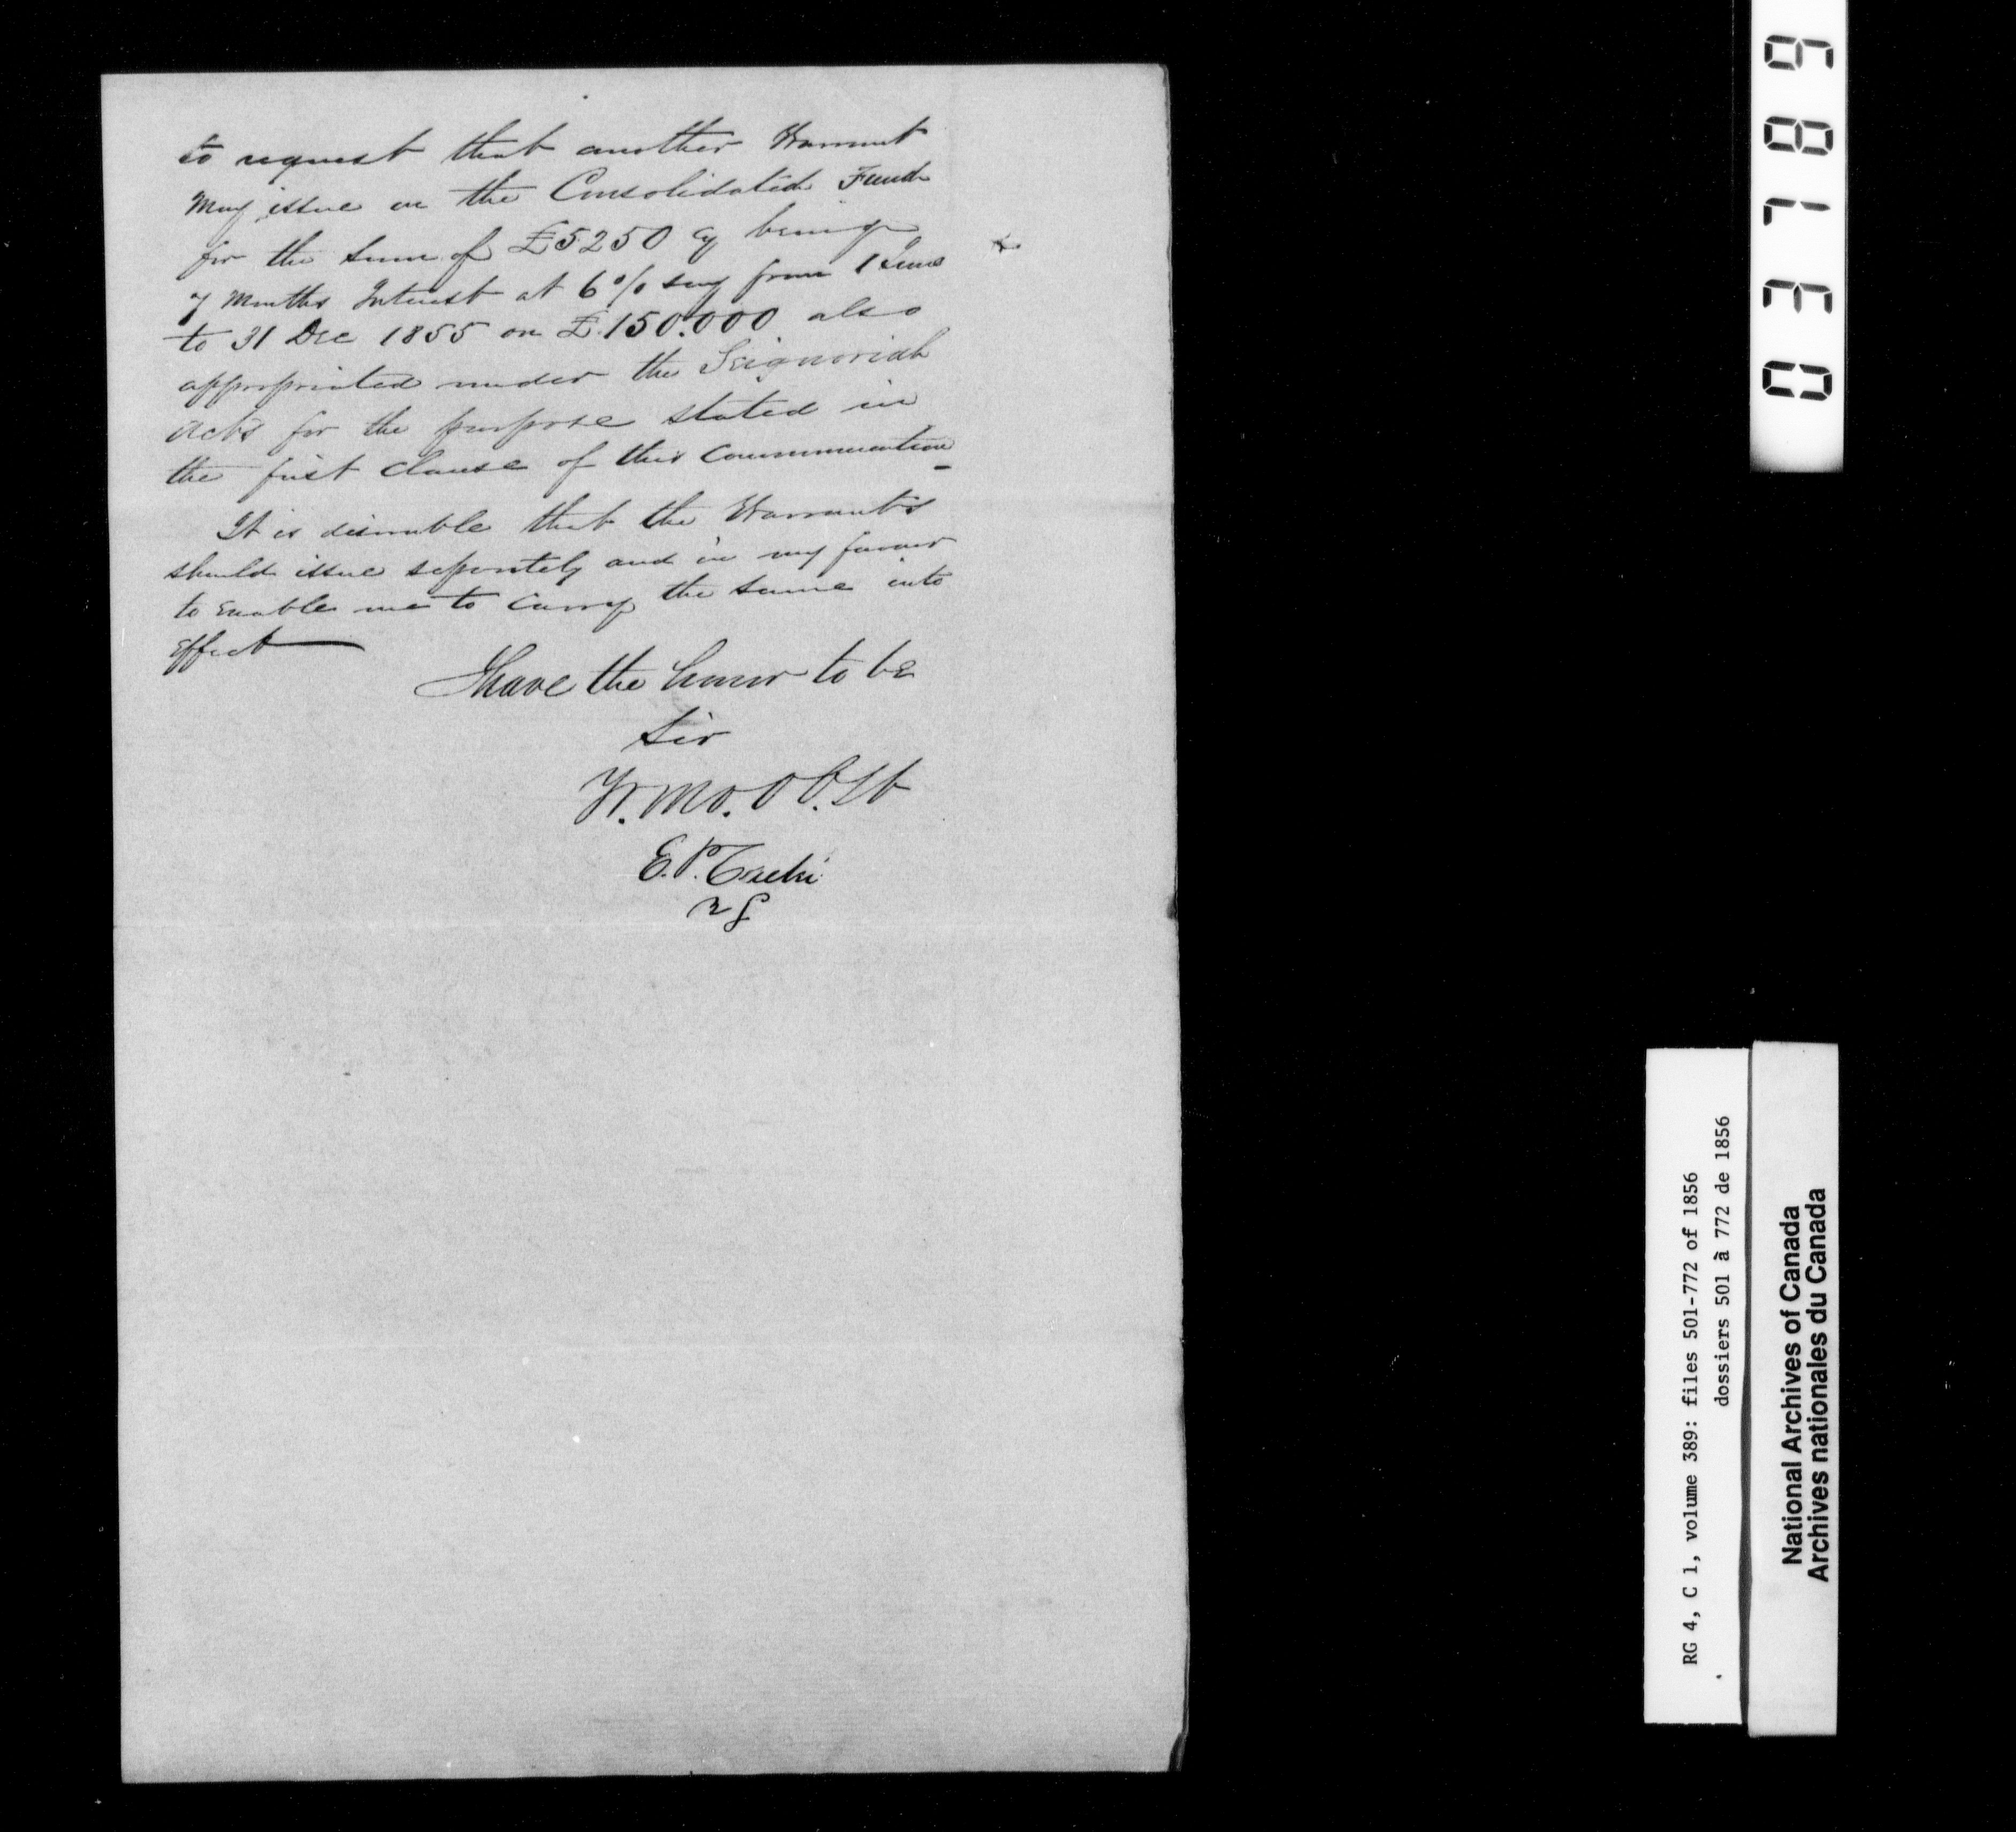 to request that another Warrant
may issue on the Consolidated Fund
for the sum of £5250 Cy being
7 Months Interest at 6% say from 1 June
to 31 Dec 1855 on £150.000 also
appropriated under the Seignorial
Acts for the purpose stated in
the first clause of this Communication
It is desirable that the Warrants
should issue separately and in my favour
to enable me to carry the same into
Effect
I have the honor to be
Sir
Yr. Mo. O b. St
E. P. Taché
R G
03789
RG 4, C 1, volume 389: files 501-772 of 1856
dossiers 501 à 772 de 1856
National Archives of Canada
Archives nationales du Canada